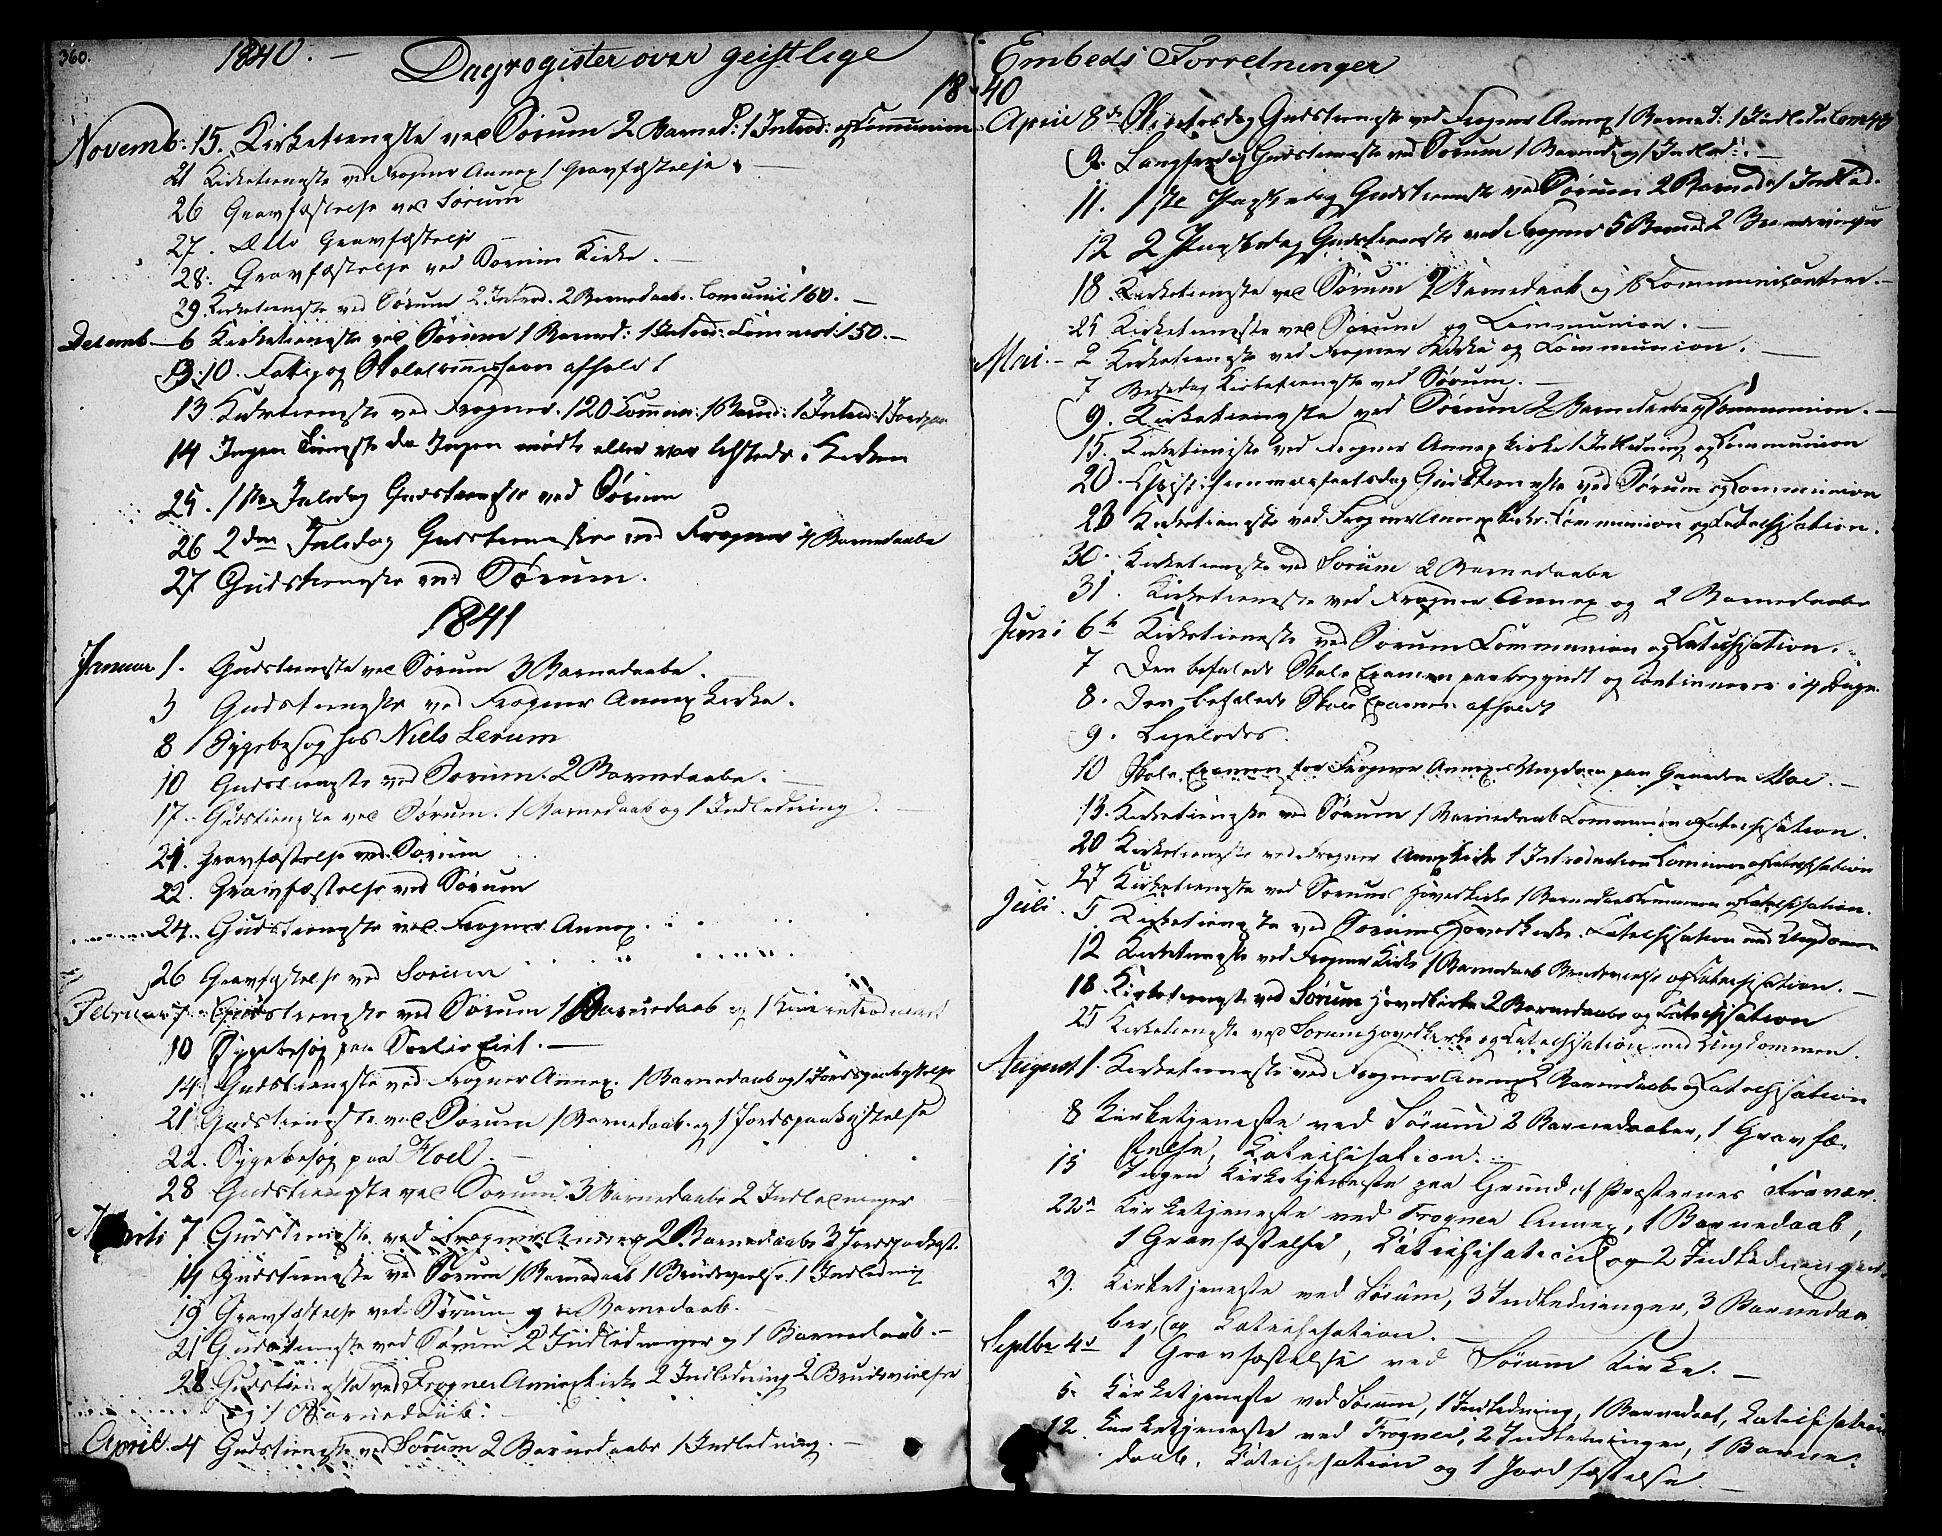 360.
1840. — Dagregister over geistlige
18
Novemb: 15. Kirketieneste ved Sørum 2 Barned: 1 Introd: og Communion
21 Kirketieneste ved Frogner Annex 1 Gravfæstelse
26 Gravfæstelse ved Sørum
27. Ditto Gravfæstelse
28. Gravfæstelse ved Sørum Kirke. —
29. Kirketieneste ved Sørum 2 Introd. 2 Barnedaab. Comunic 160. —
Decemb — 6 Kirketieneste ved Sørum 1 Barned: 1 Introd: Communi: 150. —
10. Fattig og Skolecommission afholdt
13 Kirketieneste ved Frogner. 120 Commun: 1 Barned: 1 Introd: 1 Jordpaa
14 Ingen Tieneste da Ingen mødte eller var tilstede i Kirken
25. 1ste Juledag Gudstieneste ved Sørum
26 2den Juledag Gudstieneste ved Frogner 4 Barnedaabe
27 Gudstieneste ved Sørum.
1841
Januar 1. Gudstieneste ved Sørum 3 Barnedaabe.
3 Gudstieneste ved Frogner Annex Kirke.
8 Sygebesøg hos Niels Lerum
10 Gudstieneste ved Sørum. 2 Barnedaabe. —
17. Gudstieneste ved Sørum. 1 Barnedaab og 1 Indledning. —
21. Gravfæstelse ved Sørum
22. Gravfæstelse ved Sørum
24. Gudstieneste ved Frogner Annex.
26 Gravfæstelse ved Sørum
Februar 7. Gudstieneste ved Sørum 1 Barnedaab og 1
10 Sygebesøg paa
14 Gudstieneste ved Frogner Annex. 1 Barnedaab og 1 Jordspaakastelse
21 Gudstieneste ved Sørum 1 Barnedaab og 1 Jordspaakastelse
22. Sygebesøg paa Hoel. —
28 Gudstieneste ved Sørum 3 Barnedaabe 2 Indledninger
7 Gudstieneste ved Frogner Annex 2 Barnedaabe 3 Jordspaakast.
14 Gudstieneste ved Sørum 1 Barnedaab 1 Brudevielse 1 Indledning
19 Gravfæstelse ved Sørum og Barnedaab.
21 Gudstieneste ved Sørum 2 Indledninger og 1 Barnedaab. —
28 Gudstieneste ved Frogner Annexkirke 2 Indledning 2 Brudevielser
og 1 Barnedaab.
April. 4 Gudstieneste ved Sørum 2 Barnedaabe 1 Indledning. —
Embeds Forretninger
40
April 8de Skiertorsdag Gudstieneste ved Frogner Annex 1 Barned: 1 Indledn
9. Langfredag Gudstieneste ved Sørum 1 Barned. og 1 Indled: —
11. 1ste Paaskedag Gudstieneste ved Sørum 2 Barned. 1 Indled.
12 2 Paaskedag Gudstieneste ved Frogner 5 Barned 2 Brudevielser
18. Kirketieneste ved Sørum 2 Barnedaab og Communicanter. —
25 Kirketieneste ved Sørum og Communion. —
Mai. — 2 Kirketieneste ved Frogner Kirke og Communion. —
7 Bededag Kirketieneste ved Sørum. —
9. Kirketieneste ved Sørum 2 Barnedaab og Communion. —
15. Kirketieneste ved Frogner Annex Kirke 1 Indledning og Communion
20. Christi Himmelfartsdag Gudstieneste ved Sørum og Communion
23 Kirketieneste ved Frogner Annexkirke. Communion og Catechisation.
30. Kirketieneste ved Sørum 2 Barnedaabe
31. Kirketieneste ved Frogner Annex og 2 Barnedaabe
Juni 6te Kirketieneste ved Sørum Communion og Catechisation.
7 Den befalede Skole Examen paabegyndt og continueres i 4 Dage.
8. Den befalede Skole Examen afholdt
9. Ligeledes.
10 Skole Examen for Frogner Annexes Ungdom paa Gaarden Moe. —
13. Kirketieneste ved Sørum 1 Barnedaab Communion Catechisation.
20 Kirketieneste ved Frogner Annexkirke 1 Introduction Communion og Catechisation
27 Kirketieneste ved Sørums Hovedkirke 1 Barnedaab Communion og Catechisation.
Juli. 5 Kirketieneste ved Sørums Hovedkirke. Catechisation med Ungdommen
12 Kirketieneste ved Frogner Kirke 1 Barnedaab Brudevielse og Catechisation. —
18. Kirketieneste ved Sørum Hovedkirke 2 Barnedaabe og Catechisation
25 Kirketieneste ved Sørum Hovedkirke og Catechisation med Ungdommen.
August 1. Kirketieneste ved Frogner Annex 2 Barnedaabe og Catechisation
8 Kirketjeneste ved Sørum 2 Barnedaaber, 1 Gravfæ-
stelse, Catechisation.
15 Ingen Kirketjeneste paa Grund af Præsternes Fravær.
22de Kirketjeneste ved Frogner Annex, 1 Barnedaab,
1 Gravfæstelse, Catechisation og 2 Indledninger.
29. Kirketjeneste ved Sørum, 3 Indledninger, 3 Barnedaa
ber, og Catechisation. —
Septbr 4de 1 Gravfæstelse ved Sørum Kirke. —
5. Kirketjeneste ved Sørum, 1 Indledning, 1 Barnedaab, Catechisation
12. Kirketjeneste ved Frogner, 2 Indledninger, 1 Barne-
daab, Catechisation og 1 Jordfæstelse. —